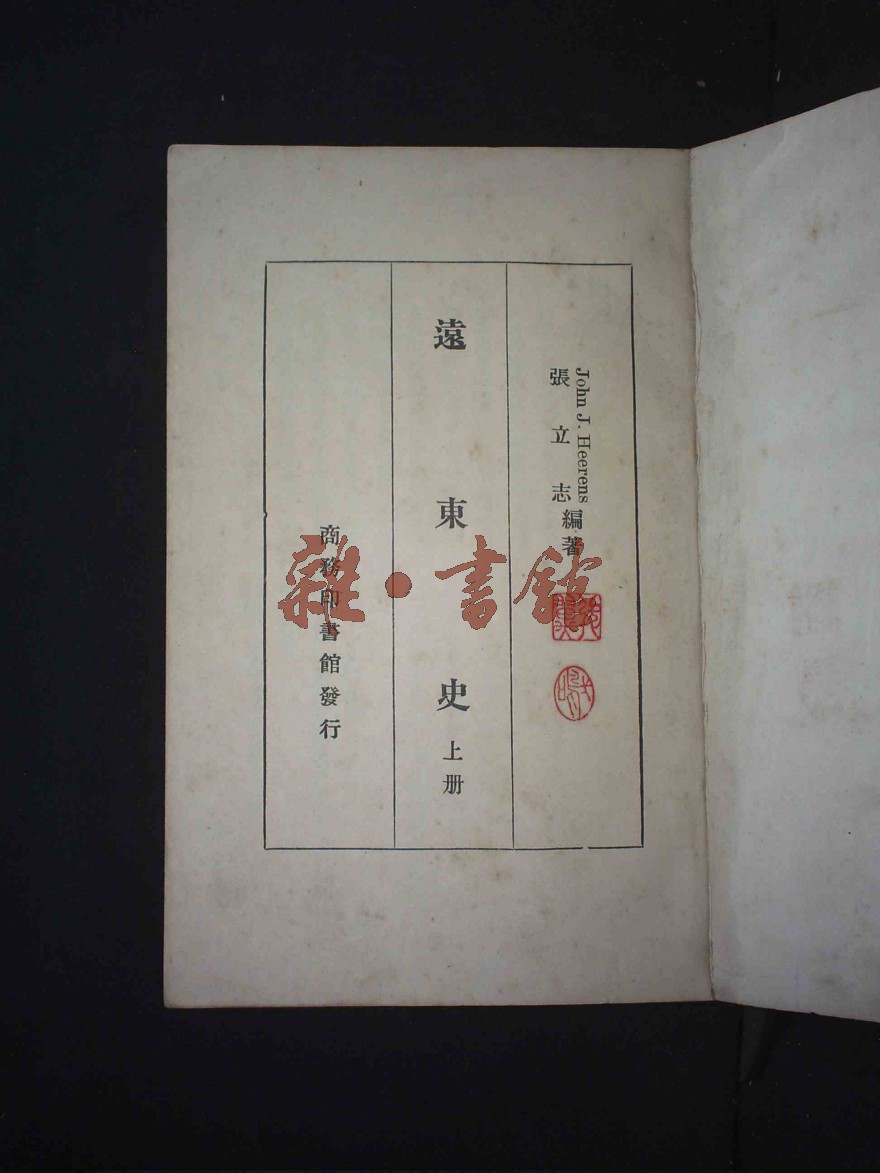 John J. Heerens
張立志
編著
遠東史 上册
商務印書館發行
雜·書館